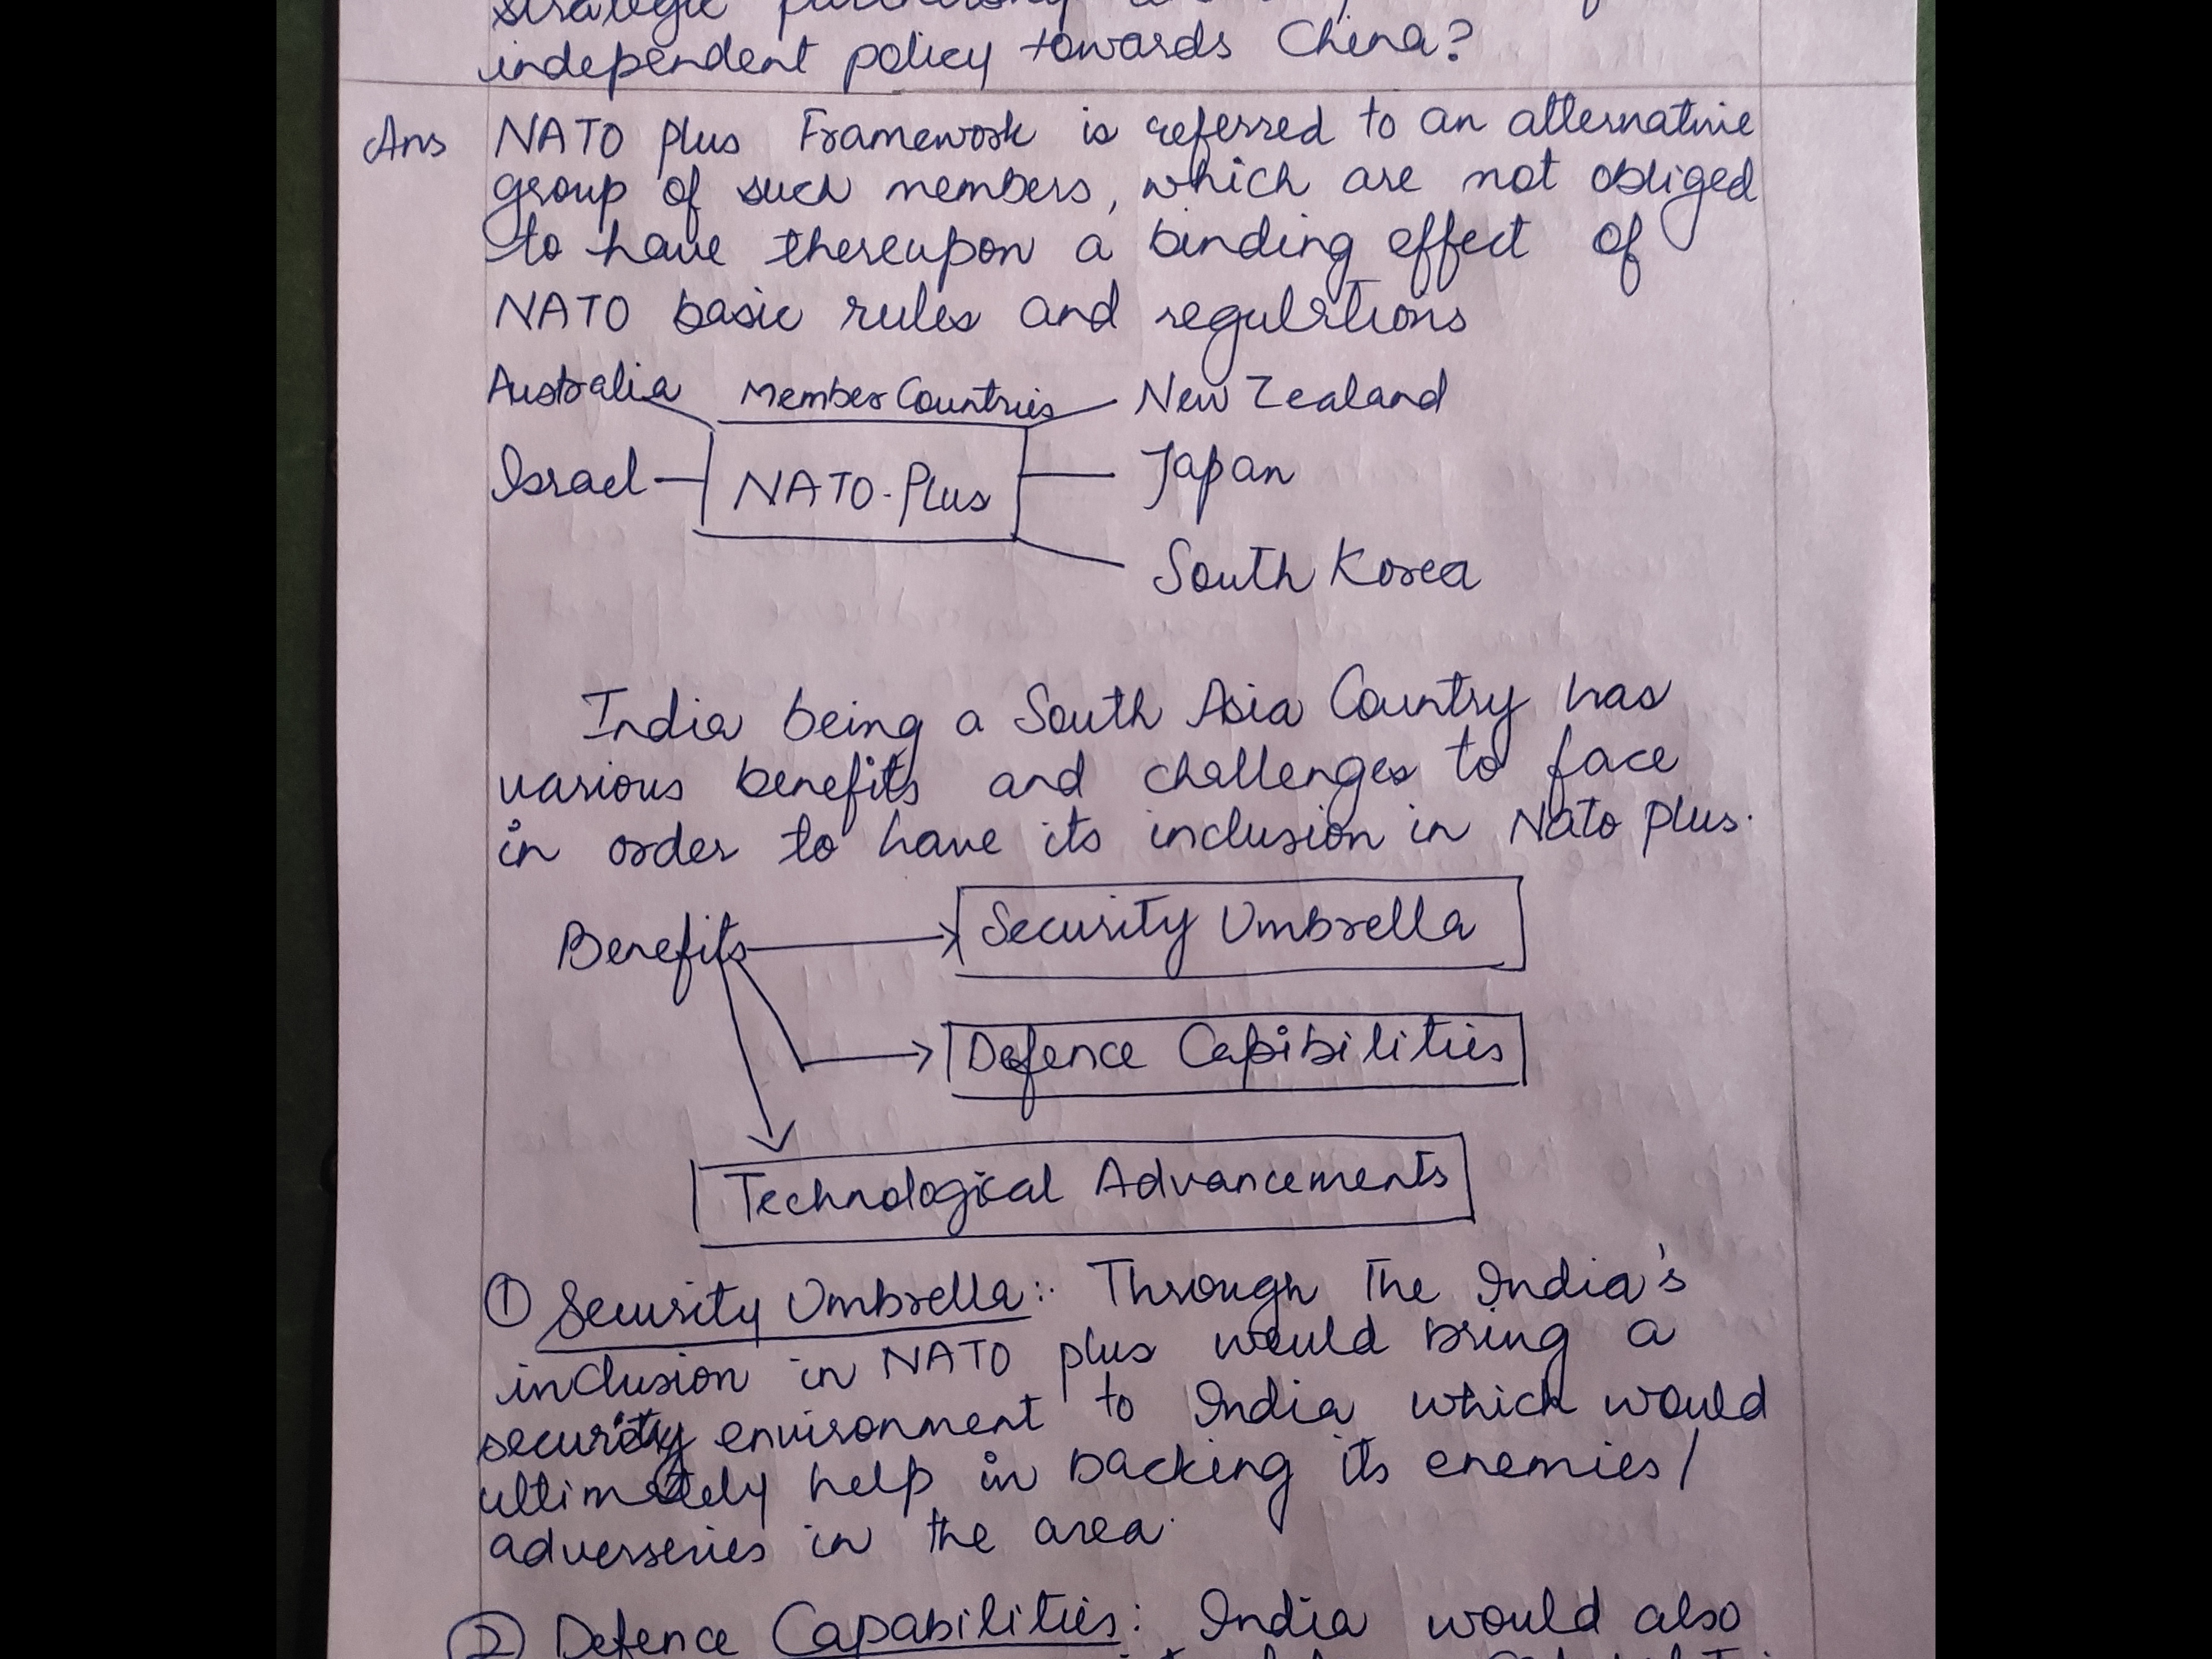 strategic partnership
independent policy towards China?
Ans NATO Plus Framework is referred to an alternative
group of such members, which are not obliged
to have thereupon a binding effect of
NATO basic rules and regulations
Australia Member Countries New Zealand
Israel NATO-Plus Japan
South Korea
India being a South Asia Country has
various benefits and challenges to face
in order to have its inclusion in Nato plus.
Benefits Security Umbrella
Defence Capibilities
Technological Advancements
① Security Umbrella:- Through The India's
inclusion in NATO plus would bring a
security environment to India which would
ultimately help in backing its enemies/
adverseries in the area.
② Defence Capabilities: India would also